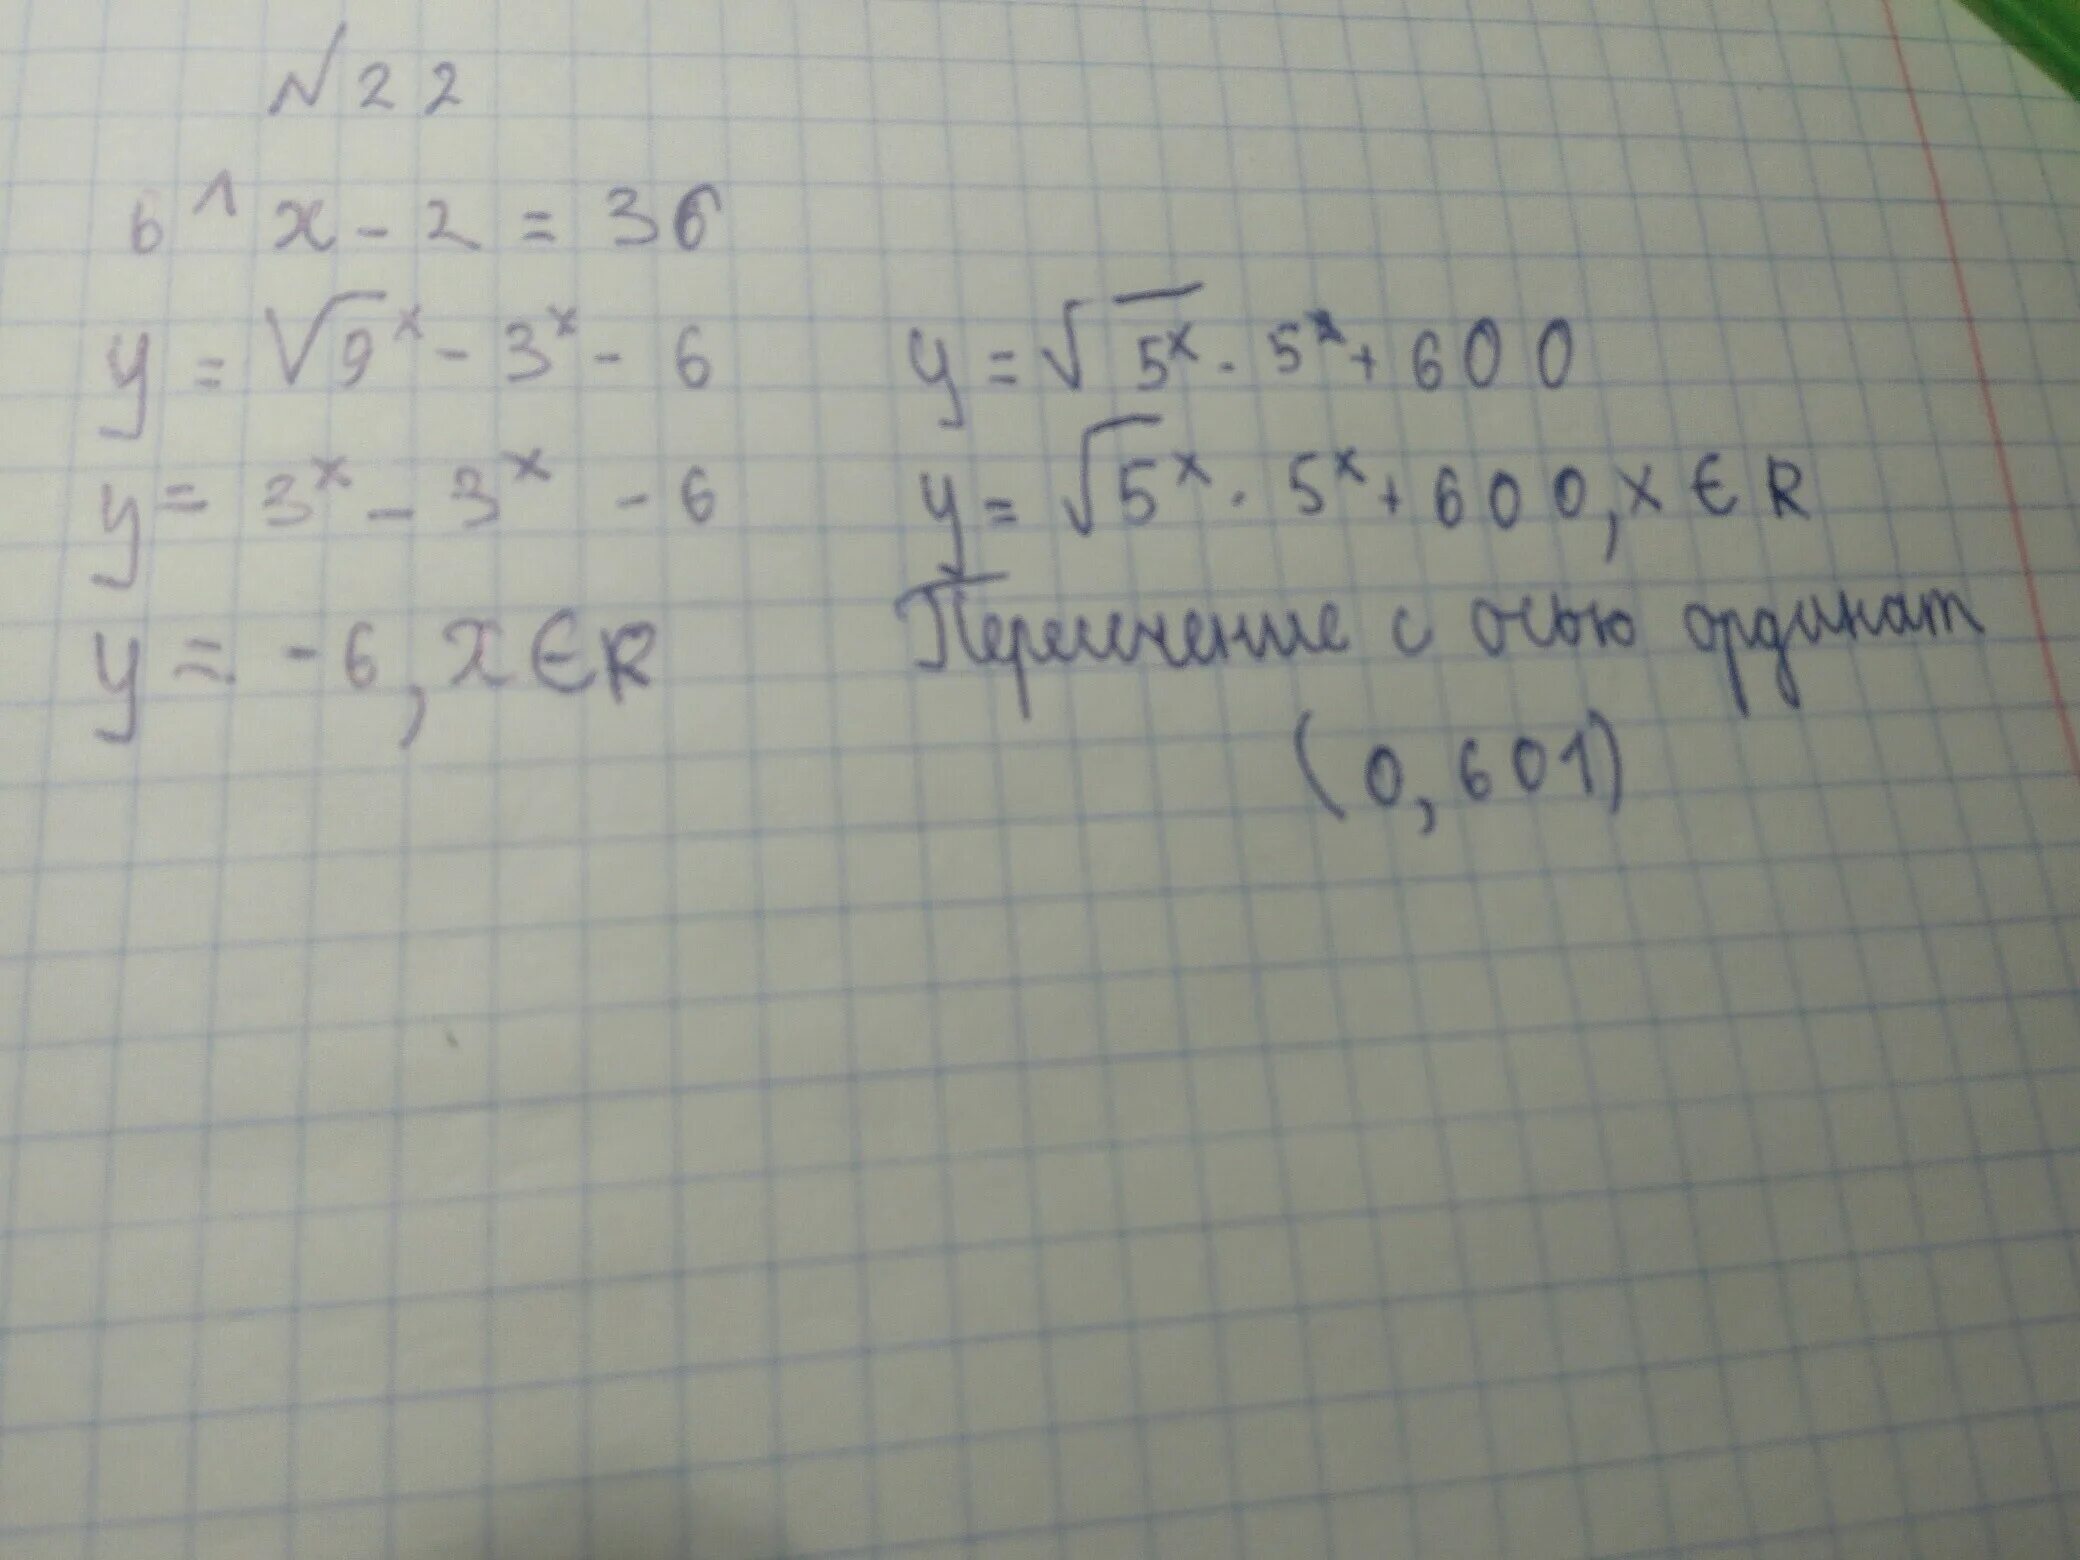 №22
6^x-2=36
y = √9^x - 3^x - 6
y = 3^x - 3^x - 6
y = -6, x ∈ R
y = √5^x · 5^x + 600
y = √5^x · 5^x + 600, x ∈ R
Пересечение с осью ординат
(0, 601)